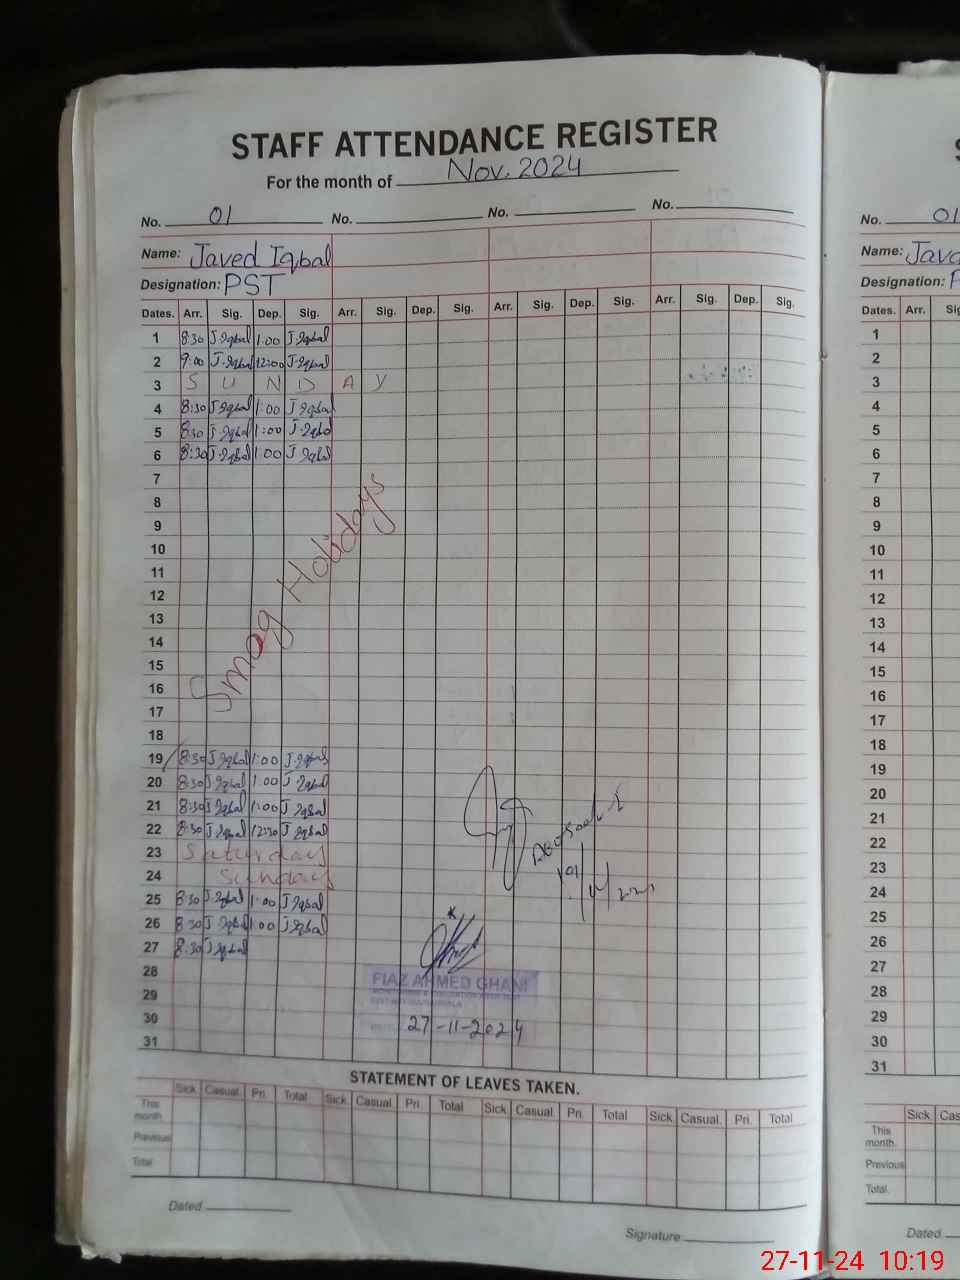 STAFF ATTENDANCE REGISTER
For the month of Nov. 2024
No. 01 No. No. No.
Name: Javed Iqbal
Designation: PST
Dates. Arr. Sig. Dep. Sig. Arr. Sig. Dep. Sig. Arr. Sig. Dep. Sig. Arr. Sig. Dep. Sig.
1 8:30 J.Iqbal 1:00 J.Iqbal
2 9:00 J.Iqbal 12:00 J.Iqbal
3 S U N D A Y
4 8:30 J.Iqbal 1:00 J.Iqbal
5 8:30 J.Iqbal 1:00 J.Iqbal
6 8:30 J.Iqbal 1:00 J.Iqbal
7
8
9
10
11
12
13
14
15
16
17
18
Smog Holidays
19 8:30 J.Iqbal 1:00 J.Iqbal
20 8:30 J.Iqbal 1:00 J.Iqbal
21 8:30 J.Iqbal 1:00 J.Iqbal
22 8:30 J.Iqbal 12:30 J.Iqbal
23 Saturday
24 Sunday
25 8:30 J.Iqbal 1:00 J.Iqbal
26 8:30 J.Iqbal 1:00 J.Iqbal
27 8:30 J.Iqbal
28
29
30
31
FIAZ AHMED GHANI
27-11-2024
STATEMENT OF LEAVES TAKEN.
Sick Casual. Pri. Total Sick Casual. Pri. Total Sick Casual. Pri. Total Sick Casual. Pri. Total
This month.
Previous
Total.
Dated
Signature
No. 01
Name: Java
Designation:
Dates. Arr. Sig.
1
2
3
4
5
6
7
8
9
10
11
12
13
14
15
16
17
18
19
20
21
22
23
24
25
26
27
28
29
30
31
Sick Cas
This month.
Previous
Total.
Dated
27-11-24 10:19